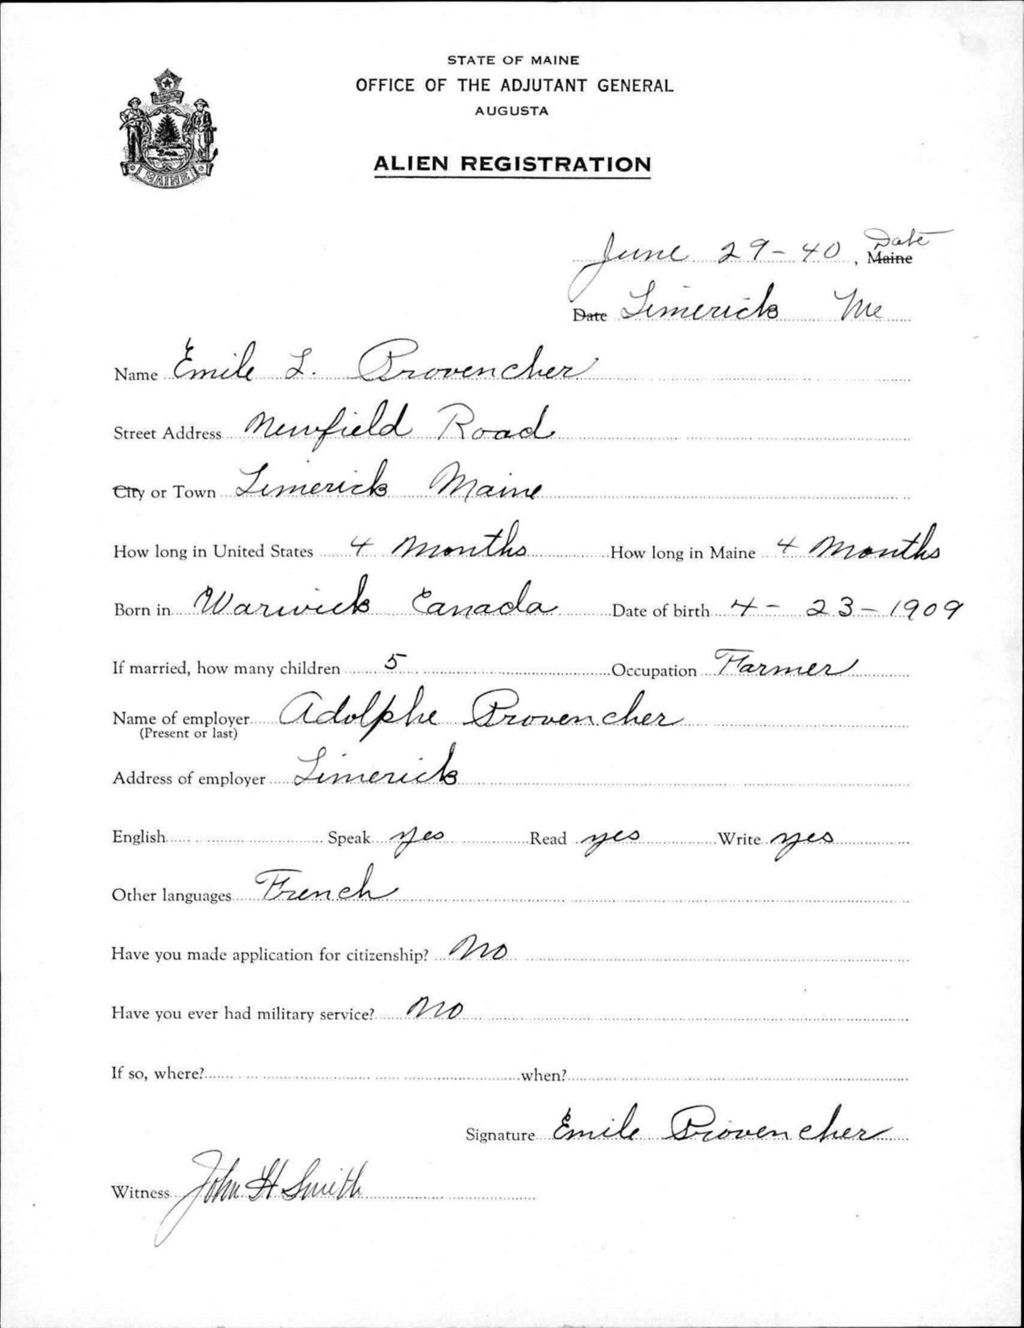 STATE OF MAINE
OFFICE OF THE ADJUTANT GENERAL
AUGUSTA
ALIEN REGISTRATION
MAINE
June 29-40, Maine Date
Date Limerick Me
Name Emile L. Provencher
Street Address Newfield Road
City or Town Limerick Maine
How long in United States 4 Months How long in Maine 4 Months
Born in Warwick Canada Date of birth 4-23-1909
If married, how many children 5 Occupation Farmer
Name of employer Adolphe Provencher
(Present or last)
Address of employer Limerick
English Speak yes Read yes Write yes
Other languages French
Have you made application for citizenship? No
Have you ever had military service? No
If so, where? when?
Signature Emile Provencher
Witness John H Smith